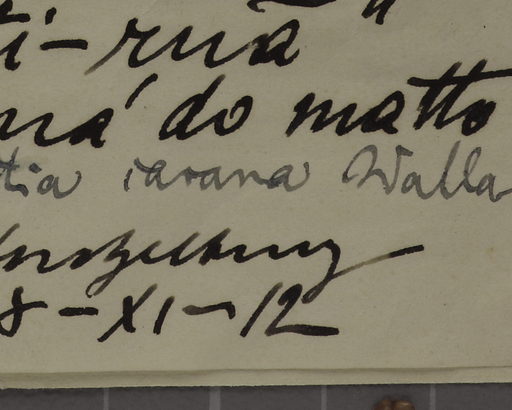 ti-ruã"
ná do matto
tia carana Walla
8-XI-12